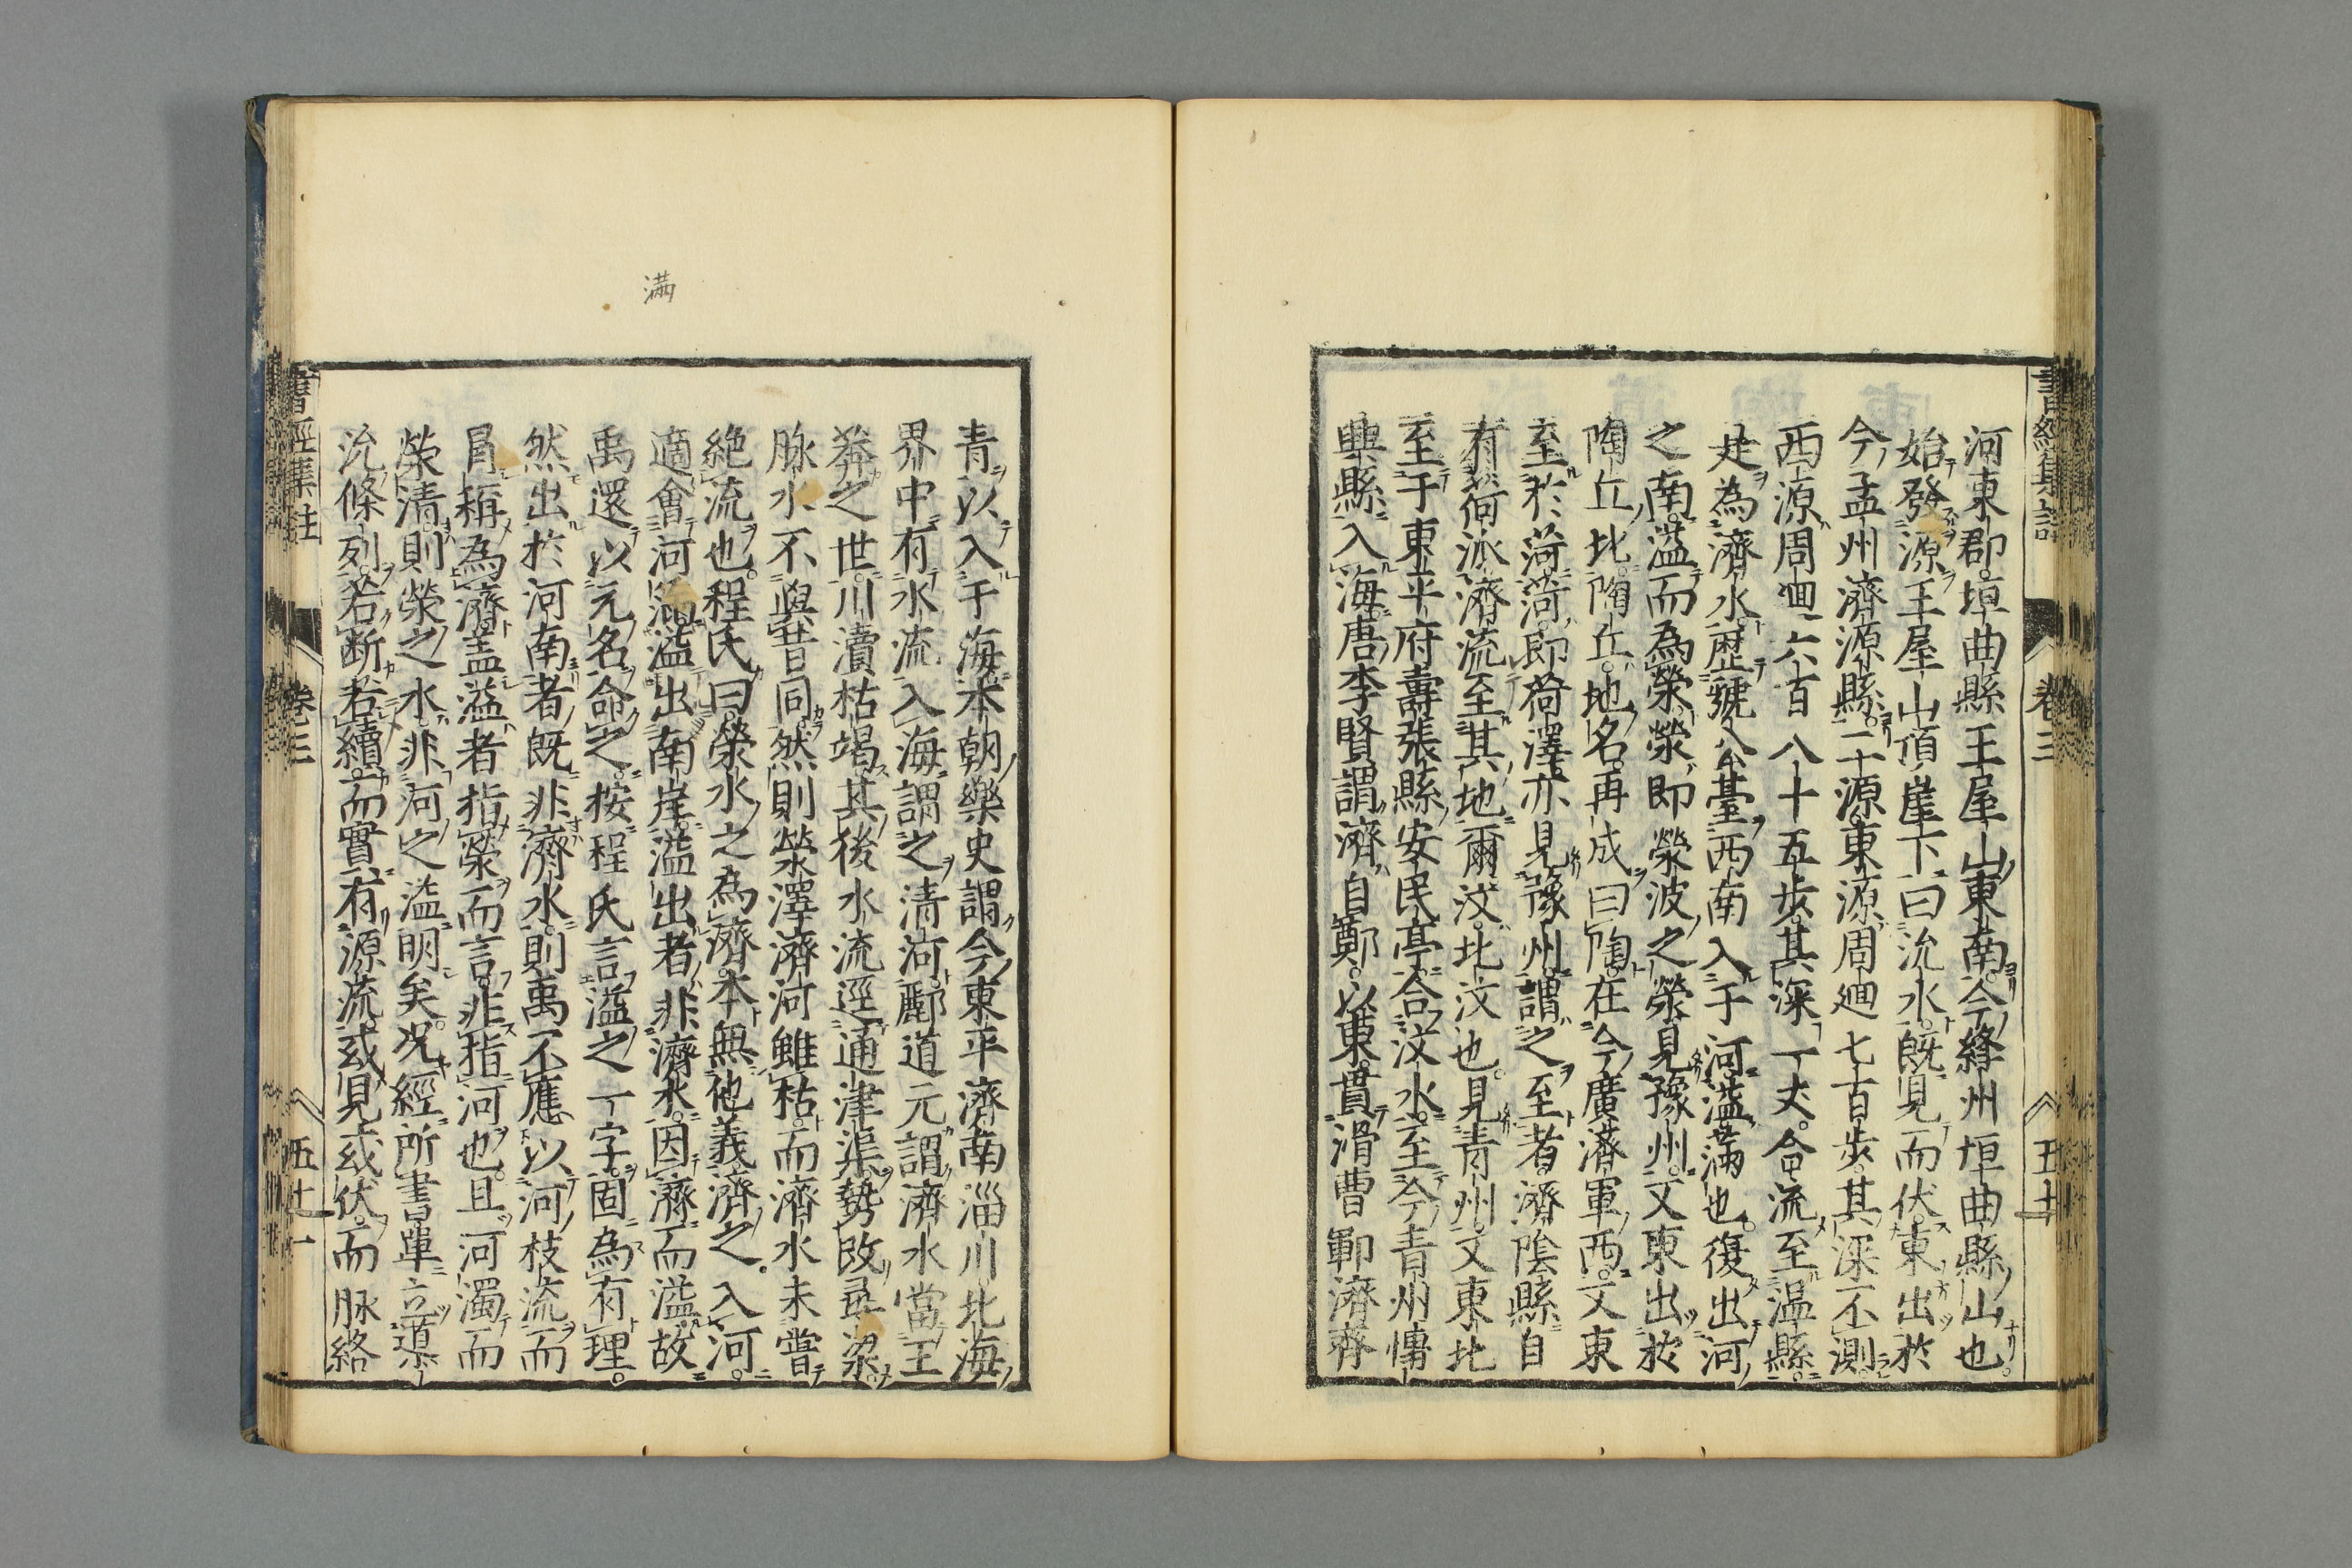 書經集註 卷三 五十
河東郡垣曲縣王屋山東南今絳州垣曲縣山也
始發源王屋山頂崖下曰沇水既見而伏東出於
今孟州濟源縣二源東源周廻七百步其深不測
西源周廻六百八十五步其深一丈合流至温縣
是為濟水歴虢公臺西南入于河溢滿也復出河
之南溢而為滎滎即滎波之滎見豫州又東出於
陶丘北陶丘地名再成曰陶在今廣濟軍西又東
至於菏菏即菏澤亦見豫州謂之至者濟陰縣自
有菏派濟流至其地爾汶北汶也見青州又東北
至于東平府壽張縣安民亭合汶水至今青州博
興縣入海唐李賢謂濟自鄭以東貫滑曹鄆濟齊
青以入于海本朝樂史謂今東平濟南淄川北海
界中有水流入海謂之清河酈道元謂濟水當王
莽之世川瀆枯竭其後水流逕通津渠勢改尋梁
脉水不與昔同然則滎澤濟河雖枯而濟水未嘗
絶流也程氏曰滎水之為濟本無他義濟之入河
適會河滿溢出南崖溢出者非濟水因濟而溢故
禹還以元名命之按程氏言溢之一字固為有理
然出於河南者既非濟水則禹不應以河枝流而
冐稱為濟盖溢者指滎而言非指河也且河濁而
滎清則滎之水非河之溢明矣况經所書單立導
沇條列若断若續而實有源流或見或伏而脉絡
書經集註 卷三 五十一
滿